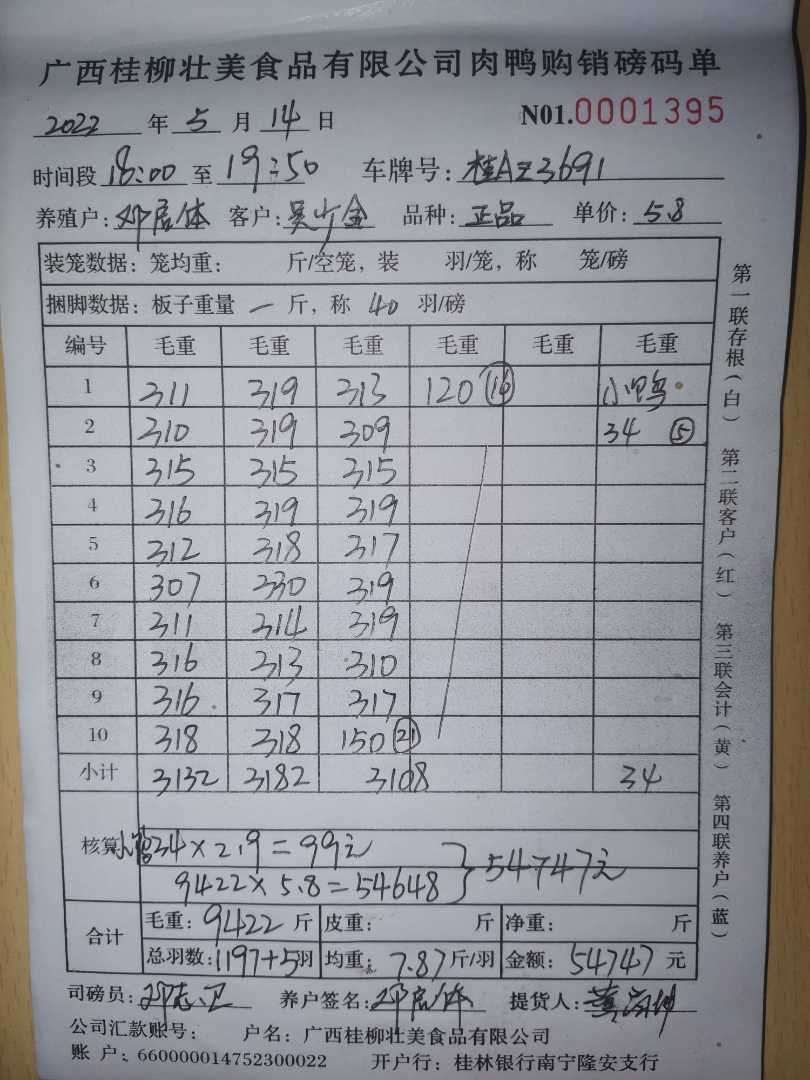 广西桂柳壮美食品有限公司肉鸭购销磅码单
2022 年 5 月 14 日 N01.0001395
时间段 18:00 至 19:50 车牌号: 桂AZ3691
养殖户: 邓启体 客户: 吴少金 品种: 正品 单价: 5.8
装笼数据: 笼均重: 斤/空笼, 装 羽/笼, 称 笼/磅
捆脚数据: 板子重量 一 斤, 称 40 羽/磅
编号 毛重 毛重 毛重 毛重 毛重 毛重
1 311 319 313 120 (16) 小鸭
2 310 319 309 34 (5)
3 315 315 315
4 316 319 319
5 312 318 317
6 307 330 319
7 311 314 319
8 316 313 310
9 316 317 317
10 318 318 150 (21)
小计 3132 3182 3108 34
核算 小鸭34×2.9=99元
9422×5.8=54648 } 54747元
合计 毛重: 9422 斤 皮重: 斤 净重: 斤
总羽数: 1197+5羽 均重: 7.87斤/羽 金额: 54747 元
司磅员: 邓志卫 养户签名: 邓启体 提货人:
公司汇款账号: 户名: 广西桂柳壮美食品有限公司
账 户: 660000014752300022 开户行: 桂林银行南宁隆安支行
第一联存根(白) 第二联客户(红) 第三联会计(黄) 第四联养户(蓝)